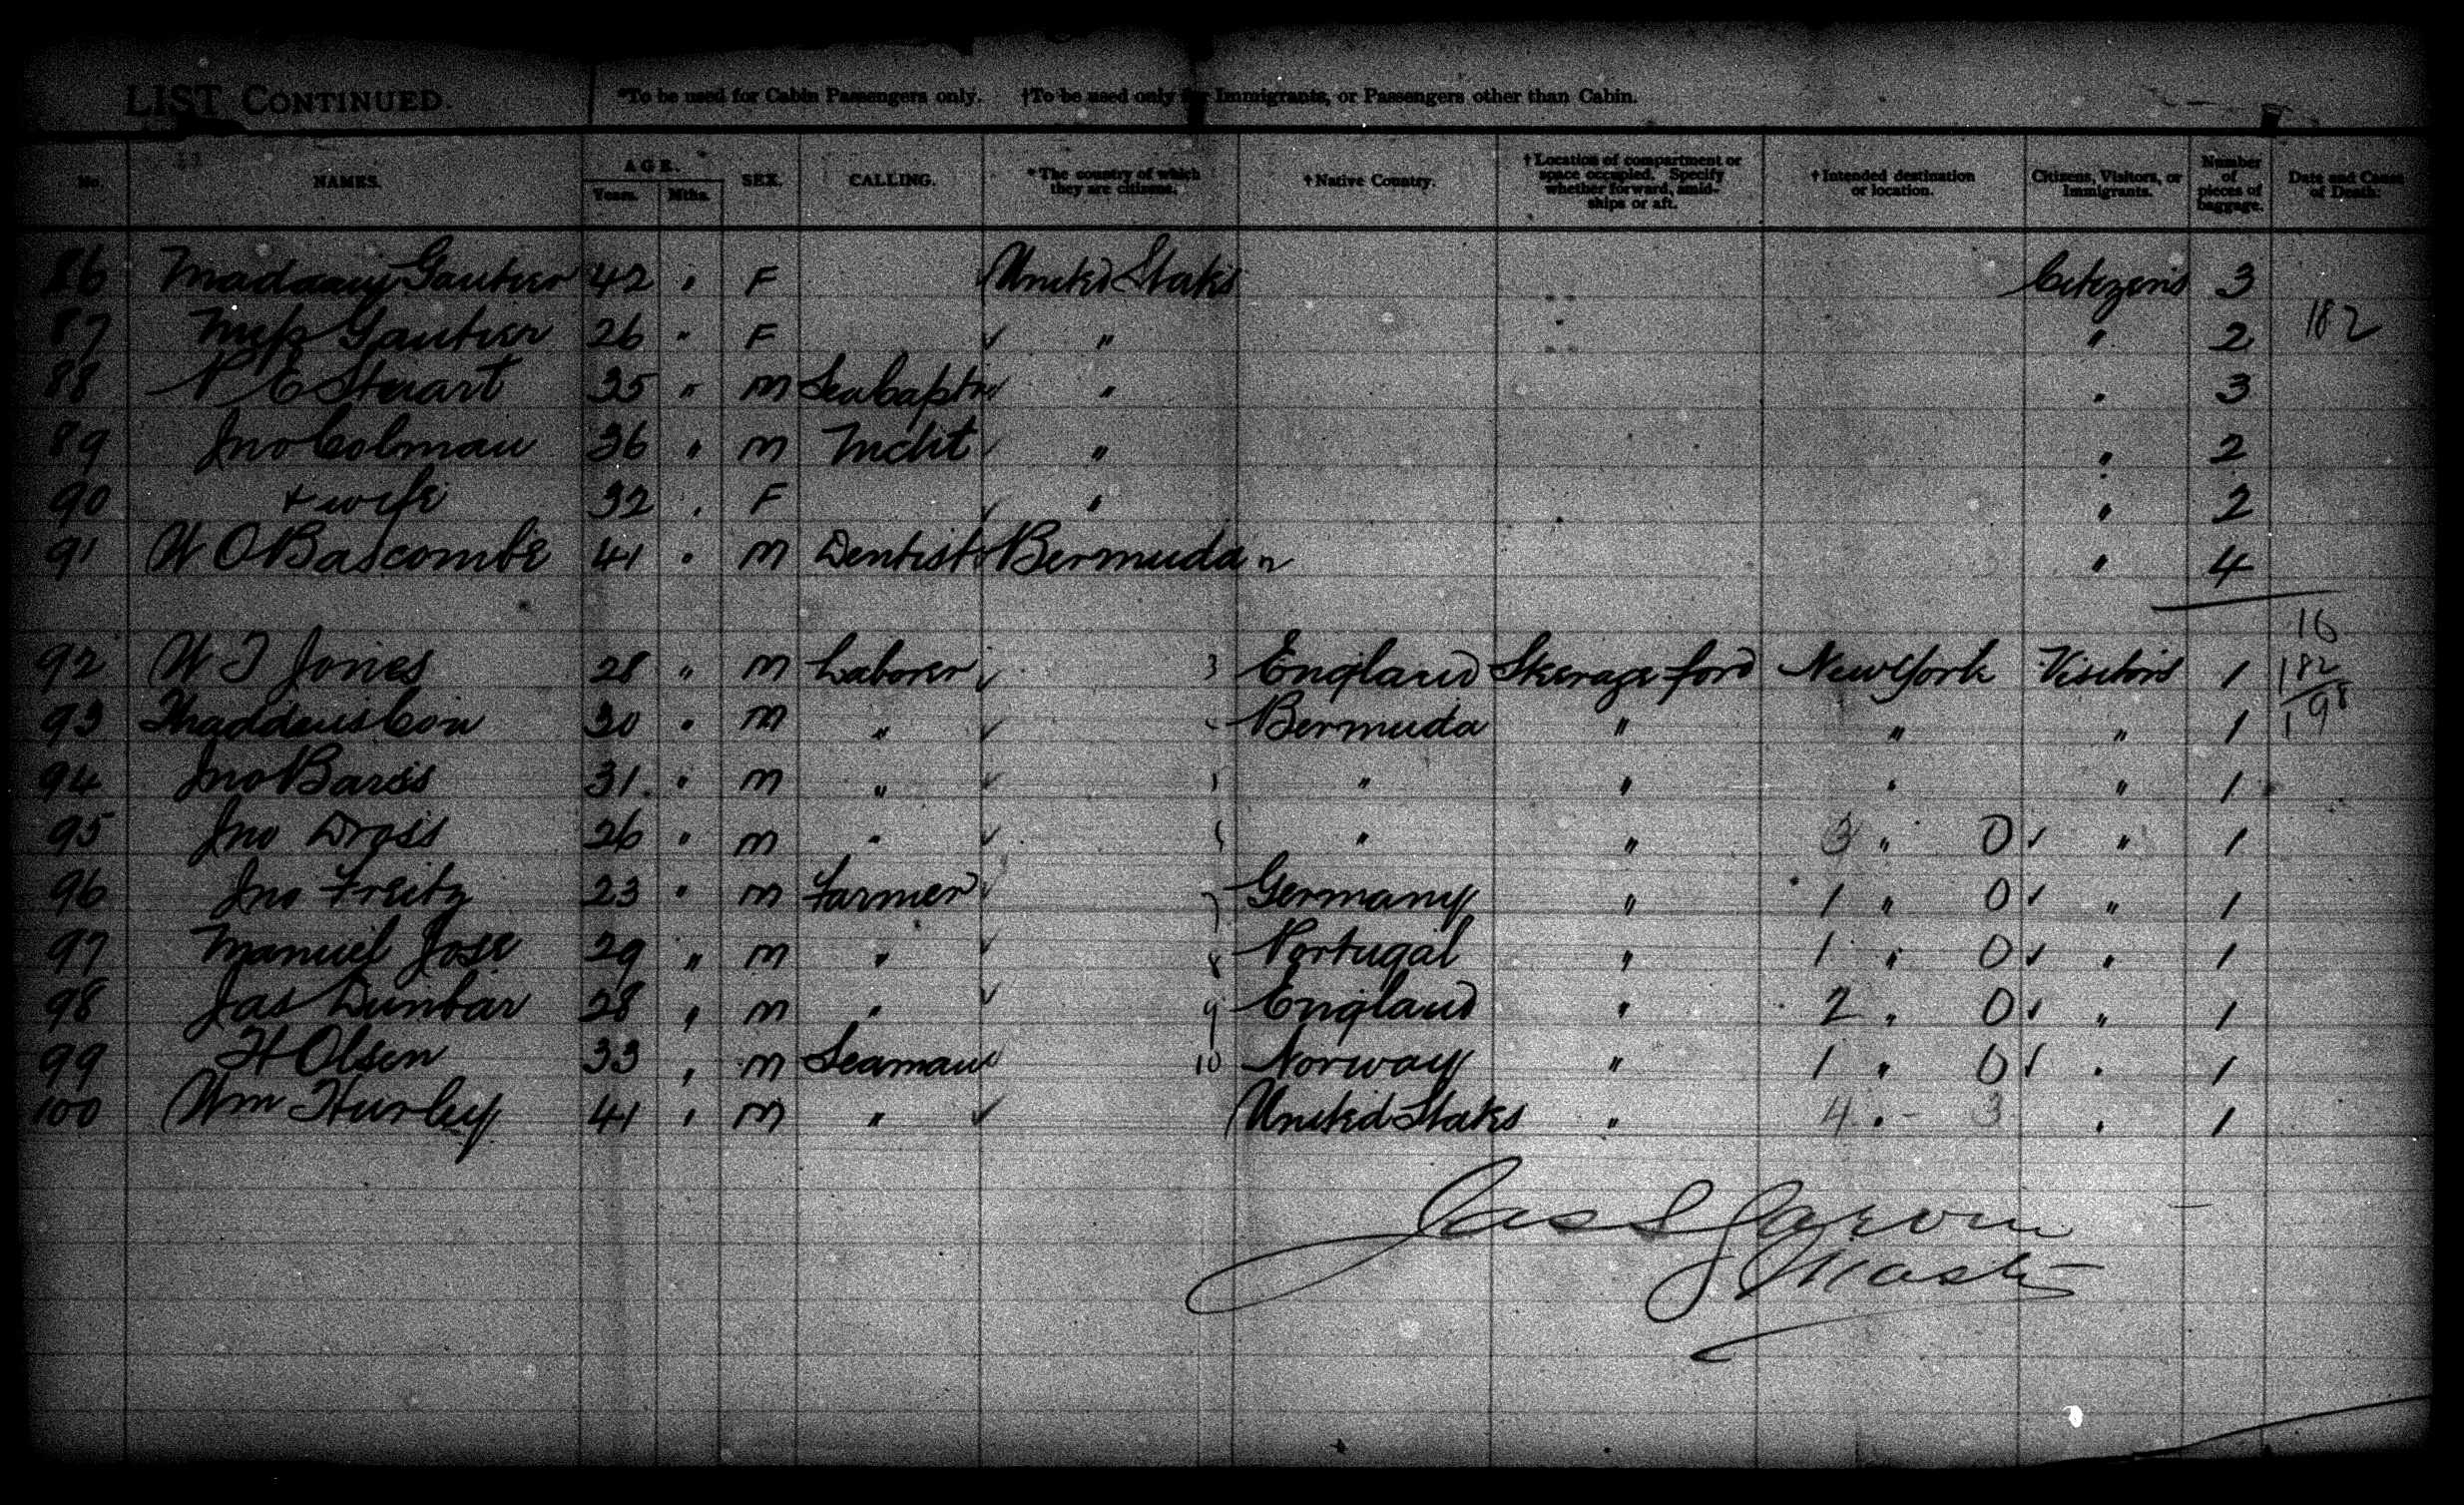 LIST CONTINUED. *To be used for Cabin Passengers only. †To be used only for Immigrants, or Passengers other than Cabin.
No. NAMES. AGE. Years. Mths. SEX. CALLING. *The country of which they are citizens. †Native Country. †Location of compartment or space occupied. Specify whether forward, amidships or aft. †Intended destination or location. Citizens, Visitors, or Immigrants. Number of pieces of baggage. Date and Cause of Death.
86 Gautier 42 " F United States Citizens 3
87 Miss Gautier 26 " F ✓ " " 2 182
88 E Stewart 35 " M ✓ " " 3
89 Jno Colman 36 " M Mcht ✓ " " 2
90 + wife 32 " F ✓ " " 2
91 W O Bascombe 41 " M Dentist Bermudan " 4
16
92 W T Jones 28 " M Laborer ✓ 3 England Skerage ford New York Visitors 1 182
93 Thaddeus 30 " M " ✓ Bermuda " " " 1 198
94 Jno Barss 31 " M " ✓ " " " " 1
95 Jno Dross 26 " M " ✓ " " 3 " 0 ✓ " 1
96 Jno Freitz 23 " M Farmer ✓ 7 Germany " 1 " 0 ✓ " 1
97 Manuel Jose 29 " M " ✓ 8 Portugal " 1 " 0 ✓ " 1
98 Jas Dunbar 28 " M " ✓ 9 England " 2 " 0 ✓ " 1
99 H Olsen 33 " M Seaman ✓ 10 Norway " 1 " 0 ✓ " 1
100 Wm Hurley 41 " M " ✓ United States " 4 " - 3 " 1
Jas S Garvin
Master